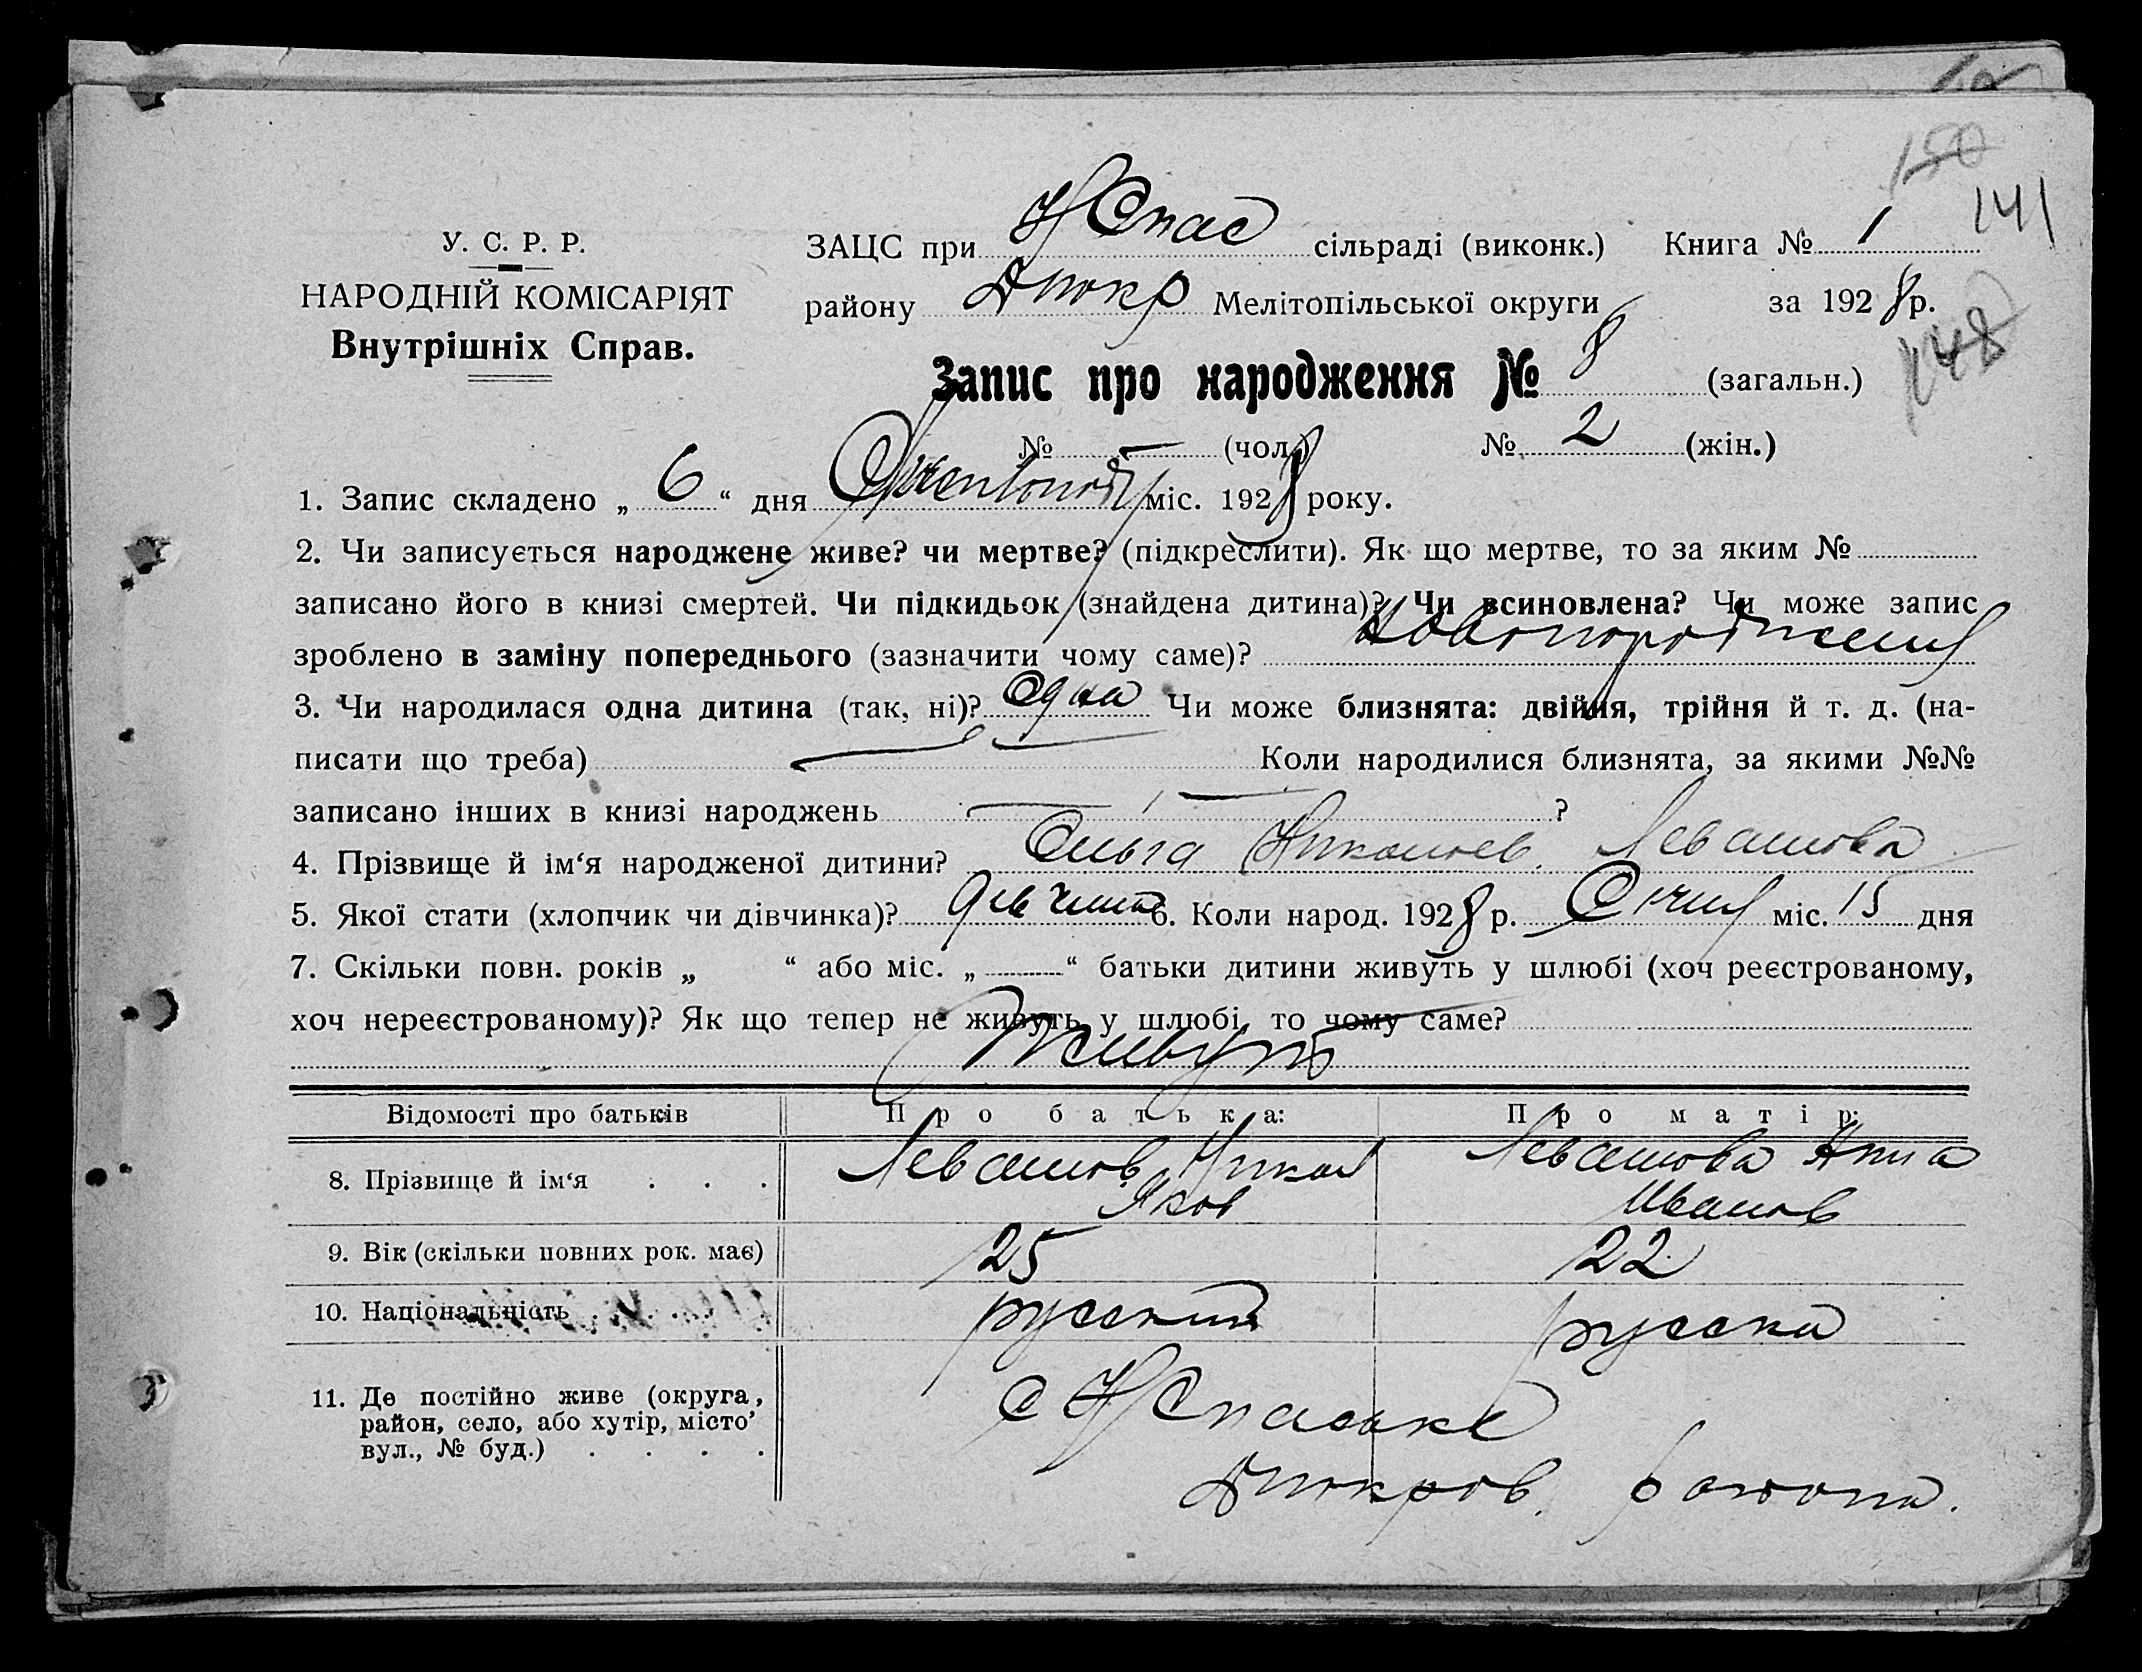 150
141
У. С. Р. Р.
НАРОДНІЙ КОМІСАРІЯТ
Внутрішніх Справ.
ЗАЦС при НСпас сільраді (виконк.) Книга № 1
району Якр Мелітопільської округи за 1928 р.
148
Запис про народження № 8 (загальн.)
№ — (чол.) № 2 (жін.)
1. Запис складено „ 6 “ дня міс. 1928 року.
2. Чи записується народжене живе? чи мертве? (підкреслити). Як що мертве, то за яким №
записано його в книзі смертей. Чи підкидьок (знайдена дитина)? Чи всиновлена? Чи може запис
зроблено в заміну попереднього (зазначити чому саме)?
3. Чи народилася одна дитина (так, ні)? Одна Чи може близнята: двійня, трійня й т. д. (на-
писати що треба) — Коли народилися близнята, за якими №№
записано інших в книзі народжень — ?
4. Прізвище й ім‘я народженої дитини? Ольга Николаев. Левашова
5. Якої стати (хлопчик чи дівчинка)? 6. Коли народ. 1928 р. Січня міс. 15 дня
7. Скільки повн. років „ “ або міс. „ “ батьки дитини живуть у шлюбі (хоч реєстрованому,
хоч нереєстрованому)? Як що тепер не живуть у шлюбі, то чому саме?
Живуть
Відомості про батьків Про батька: Про матір:
8. Прізвище й ім‘я . . . Левашов Никол Яков Левашова Анна Иванов
9. Вік (скільки повних рок. має) 25 22
10. Національність русский русска
11. Де постійно живе (округа,
район, село, або хутір, місто’
вул., № буд.) . . . .
с НСпаське
района.